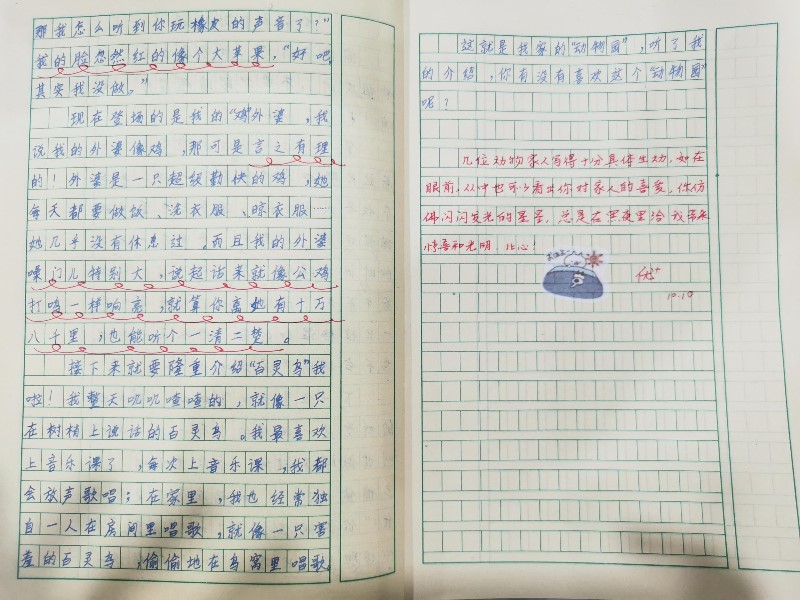 那我怎么听到你玩橡皮的声音了？"
我的脸忽然红的像个大苹果，"好吧，
其实我没做。"
现在登场的是我的"鸡"外婆，我
说我的外婆像鸡，那可是言之有理
的！外婆是一只超级勤快的鸡，她
每天都要做饭、洗衣服、晾衣服……
她几乎没有休息过。而且我的外婆
嗓门儿特别大，说起话来就像公鸡
打鸣一样响亮，就算你离她有十万
八千里，也能听个一清二楚。
接下来就要隆重介绍"百灵鸟"我
啦！我整天叽叽喳喳的，就像一只
在树梢上说话的百灵鸟。我最喜欢
上音乐课了，每次上音乐课，我都
会放声歌唱；在家里，我也经常独
自一人在房间里唱歌，就像一只害
羞的百灵鸟，偷偷地在鸟窝里唱歌。
这就是我家的"动物园"，听了我
的介绍，你有没有喜欢这个"动物园"
呢？
几位动物家人写得十分具体生动，如在
眼前，从中也可以看出你对家人的喜爱。你仿
佛闪闪发光的星星，总是在黑夜里给我带来
惊喜和光明，比心！
优+
10.10